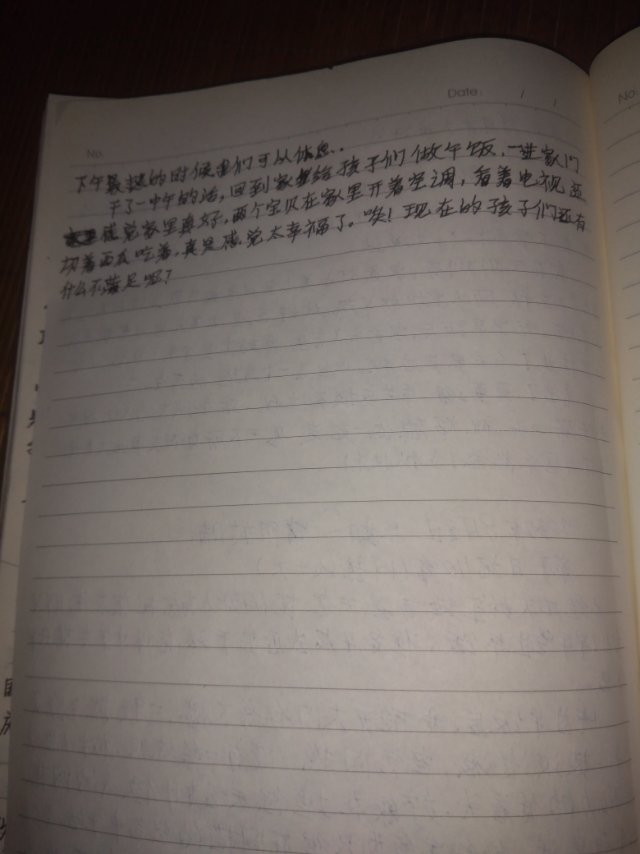 Date: / /
No.
No
下午最热的时候我们可以休息..
干了一中午的活,回到家里给孩子们做午饭,一进家门
感觉家里真好,两个宝贝在家里开着空调,看着电视,还
切着西瓜吃着,真是感觉太幸福了。唉!现在的孩子们还有
什么不满足呢?